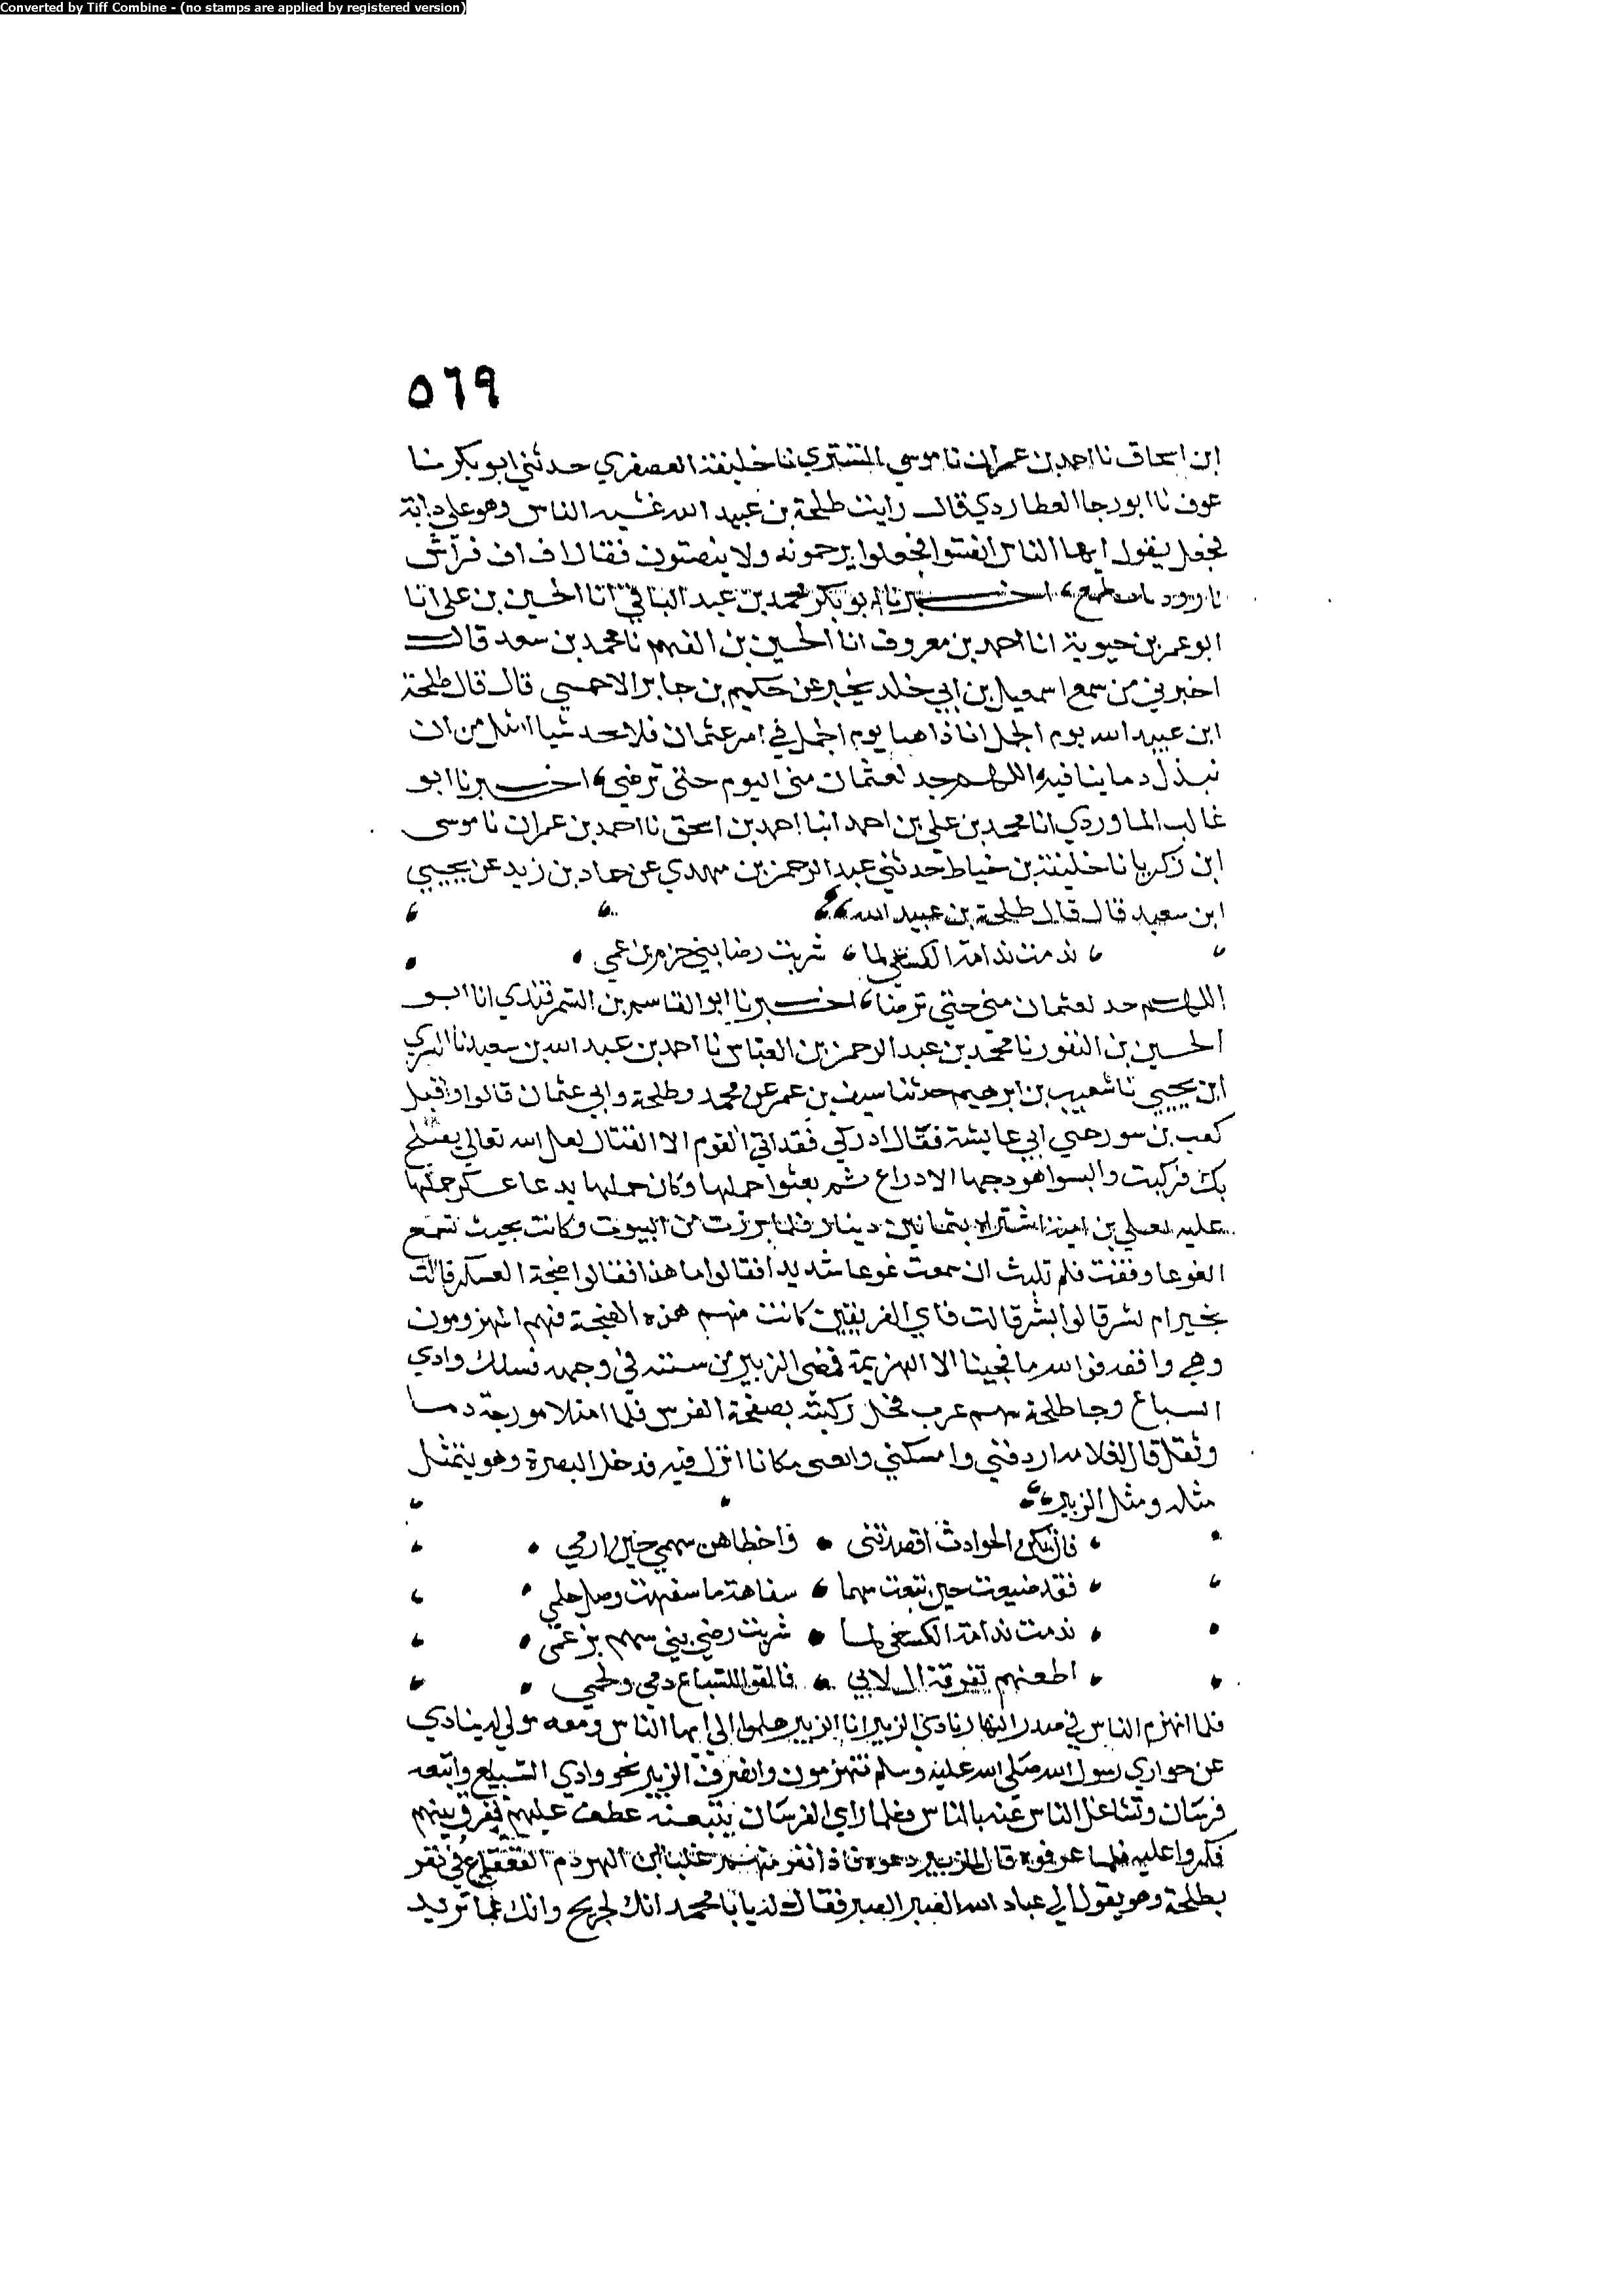 Converted by Tiff Combine - (no stamps are applied by registered version)
٥٦٩
ابن اسحاق نا احمد بن عمران نا موسى التستري نا خليفة العصفري حدثني ابو بكر نا
عوف نا ابو رجا العطاردي قال رايت طلحة بن عبيد الله غشيه الناس وهو على دابة
فجعل يقول ايها الناس انصتوا فجعلوا يرحمونه ولا ينصتون فقال اف اف فراش
نار وذباب طمع، اخبرنا ابو بكر محمد بن عبد الباقي انا الحسين بن علي انا
ابو عمر بن حيوية انا احمد بن معروف انا الحسين بن الفهم نا محمد بن سعد قال
اخبرني من سمع اسمعيل بن ابي خلد يخبر عن حكيم بن جابر الاحمسي قال قال طلحة
ابن عبيد الله يوم الجمل انا يوم الجمل في امر عثمان فلا شيا امثل من ان
نبذل دماينا فيه اللهم خد لعثمان مني اليوم حتى ترضى، اخبرنا ابو
غالب الماوردي انا محمد بن علي بن احمد انبا احمد بن اسحق نا احمد بن عمران نا موسى
ابن زكريا نا خليفة بن خياط حدثني عبد الرحمن بن مهدي عن حماد بن زيد عن يحيى
ابن سعيد قال قال طلحة بن عبيد الله
ندمت ندامة الكسعي لما ، شربت رضا بني حزم بن عمي
اللهم خد لعثمان مني حتى ترضا، اخبرنا ابو القاسم بن السمرقندي انا ابو
الحسين بن النقور نا محمد بن عبد الرحمن بن العباس نا احمد بن عبد الله بن سعيد نا السري
ابن يحيى نا شعيب بن ابرهيم حدثنا سيف بن عمر عن محمد وطلحة وابي عثمان قالوا واقبل
كعب بن سور حتى اتى عايشة فقال ادركي فقد ابى القوم الا القتال لعل الله تعالى يصلح
بك فركبت والبسوا هودجها الادراع ثم بعثوا جملها وكان جملها يدعا عسكر حملها
عليه يعلى بن امية اشتراه بثمانين دينار فلما برزت من البيوت وكانت بحيث تسمع
الغوغا وقفت فلم تلبث ان سمعت غوغا شديدا فقالوا ما هذا فقالوا ضجة العسكر قالت
بخير ام بشر قالوا بشر قالت فاي الفريقين كانت منهم هذه الضجة فهم المهزومون
وهي واقفة فوالله ما فجينا الا الهزيمة فمضى الزبير من سننه في وجهه فسلك وادي
السباع وجا طلحة سهم غرب فخل ركبته بصفحة الفرس فلما امتلا موزجه دما
وثقل قال لغلامه اردفني وامسكني وابغني مكانا انزل فيه فدخل البصرة وهو يتمثل
مثله ومثل الزبير
فان تكن الحوادث اقصدتني ، واخطاهن سهمي حين ارمي
فقد ضيعت حين تبعت سهما ، سفاهة ما سفهت وضل حلمي
ندمت ندامة الكسعي لما ، شربت رضى بني سهم بزعمي
اطعتهم بفرقة ال لاي ، فالقوا للسباع دمي ولحمي
فلما انهزم الناس في صدر النهار نادى الزبير انا الزبير هلموا الي ايها الناس ومعه مولى له ينادي
عن حواري رسول الله صلى الله عليه وسلم تنهزمون وانصرف الزبير نحو وادي السباع واتبعه
فرسان وتشاغل الناس عنه بالناس فلما راى الفرسان يتبعنه عطف عليهم ففرق بينهم
فكروا عليه فلما عرفوه قال الزبير دعوه فاذا نفر منهم علباء بن الهردم القعقاع في نفر
بطلحة وهو يقول الي عباد الله الصبر الصبر فقال له يا ابا محمد انك لجريح وانك عما تريد